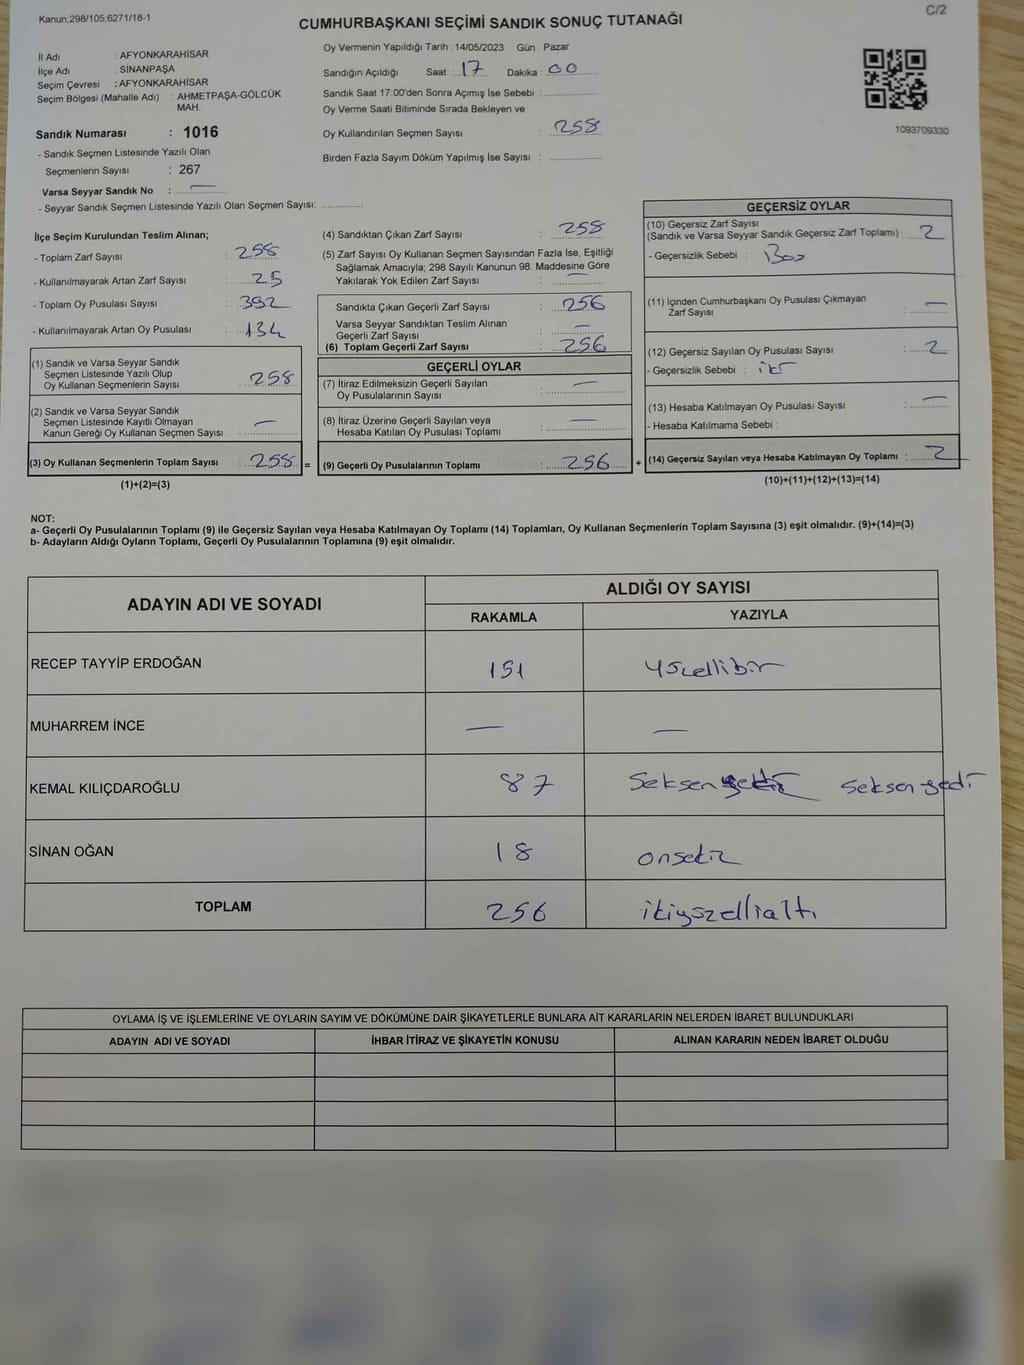 Kanun,298/105,6271/18-1
C/2
CUMHURBAŞKANI SEÇİMİ SANDIK SONUÇ TUTANAĞI
İl Adı : AFYONKARAHİSAR
İlçe Adı : SİNANPAŞA
Seçim Çevresi : AFYONKARAHİSAR
Seçim Bölgesi (Mahalle Adı) : AHMETPAŞA-GÖLCÜK
MAH.
Sandık Numarası : 1016
- Sandık Seçmen Listesinde Yazılı Olan
Seçmenlerin Sayısı : 267
Varsa Seyyar Sandık No : —
- Seyyar Sandık Seçmen Listesinde Yazılı Olan Seçmen Sayısı: ..............
Oy Vermenin Yapıldığı Tarih : 14/05/2023 Gün : Pazar
Sandığın Açıldığı Saat : 17 Dakika : 00
Sandık Saat 17:00'den Sonra Açımış İse Sebebi : ..............
Oy Verme Saati Bitiminde Sırada Bekleyen ve
Oy Kullandırılan Seçmen Sayısı : 258
Birden Fazla Sayım Döküm Yapılmış İse Sayısı : ..............
1093709330
İlçe Seçim Kurulundan Teslim Alınan;
- Toplam Zarf Sayısı : 258
- Kullanılmayarak Artan Zarf Sayısı : 25
- Toplam Oy Pusulası Sayısı : 392
- Kullanılmayarak Artan Oy Pusulası : 134
(1) Sandık ve Varsa Seyyar Sandık
Seçmen Listesinde Yazılı Olup
Oy Kullanan Seçmenlerin Sayısı : 258
(2) Sandık ve Varsa Seyyar Sandık
Seçmen Listesinde Kayıtlı Olmayan
Kanun Gereği Oy Kullanan Seçmen Sayısı : —
(3) Oy Kullanan Seçmenlerin Toplam Sayısı : 258 =
(1)+(2)=(3)
(4) Sandıktan Çıkan Zarf Sayısı : 258
(5) Zarf Sayısı Oy Kullanan Seçmen Sayısından Fazla İse, Eşitliği
Sağlamak Amacıyla; 298 Sayılı Kanunun 98. Maddesine Göre
Yakılarak Yok Edilen Zarf Sayısı : —
Sandıkta Çıkan Geçerli Zarf Sayısı : 256
Varsa Seyyar Sandıktan Teslim Alınan
Geçerli Zarf Sayısı : —
(6) Toplam Geçerli Zarf Sayısı : 256
GEÇERLİ OYLAR
(7) İtiraz Edilmeksizin Geçerli Sayılan
Oy Pusulalarının Sayısı : —
(8) İtiraz Üzerine Geçerli Sayılan veya
Hesaba Katılan Oy Pusulası Toplamı : —
(9) Geçerli Oy Pusulalarının Toplamı : 256 +
GEÇERSİZ OYLAR
(10) Geçersiz Zarf Sayısı
(Sandık ve Varsa Seyyar Sandık Geçersiz Zarf Toplamı) : 2
- Geçersizlik Sebebi :
(11) İçinden Cumhurbaşkanı Oy Pusulası Çıkmayan
Zarf Sayısı : —
(12) Geçersiz Sayılan Oy Pusulası Sayısı : 2
- Geçersizlik Sebebi :
(13) Hesaba Katılmayan Oy Pusulası Sayısı : —
- Hesaba Katılmama Sebebi :
(14) Geçersiz Sayılan veya Hesaba Katılmayan Oy Toplamı : 2
(10)+(11)+(12)+(13)=(14)
NOT:
a- Geçerli Oy Pusulalarının Toplamı (9) ile Geçersiz Sayılan veya Hesaba Katılmayan Oy Toplamı (14) Toplamları, Oy Kullanan Seçmenlerin Toplam Sayısına (3) eşit olmalıdır. (9)+(14)=(3)
b- Adayların Aldığı Oyların Toplamı, Geçerli Oy Pusulalarının Toplamına (9) eşit olmalıdır.
ADAYIN ADI VE SOYADI
ALDIĞI OY SAYISI
RAKAMLA YAZIYLA
RECEP TAYYİP ERDOĞAN 151 yüzellibir
MUHARREM İNCE — —
KEMAL KILIÇDAROĞLU 87 Seksen seksen yedi
SİNAN OĞAN 18 onsekiz
TOPLAM 256 ikiyüzellialtı
OYLAMA İŞ VE İŞLEMLERİNE VE OYLARIN SAYIM VE DÖKÜMÜNE DAİR ŞİKAYETLERLE BUNLARA AİT KARARLARIN NELERDEN İBARET BULUNDUKLARI
ADAYIN ADI VE SOYADI İHBAR İTİRAZ VE ŞİKAYETİN KONUSU ALINAN KARARIN NEDEN İBARET OLDUĞU